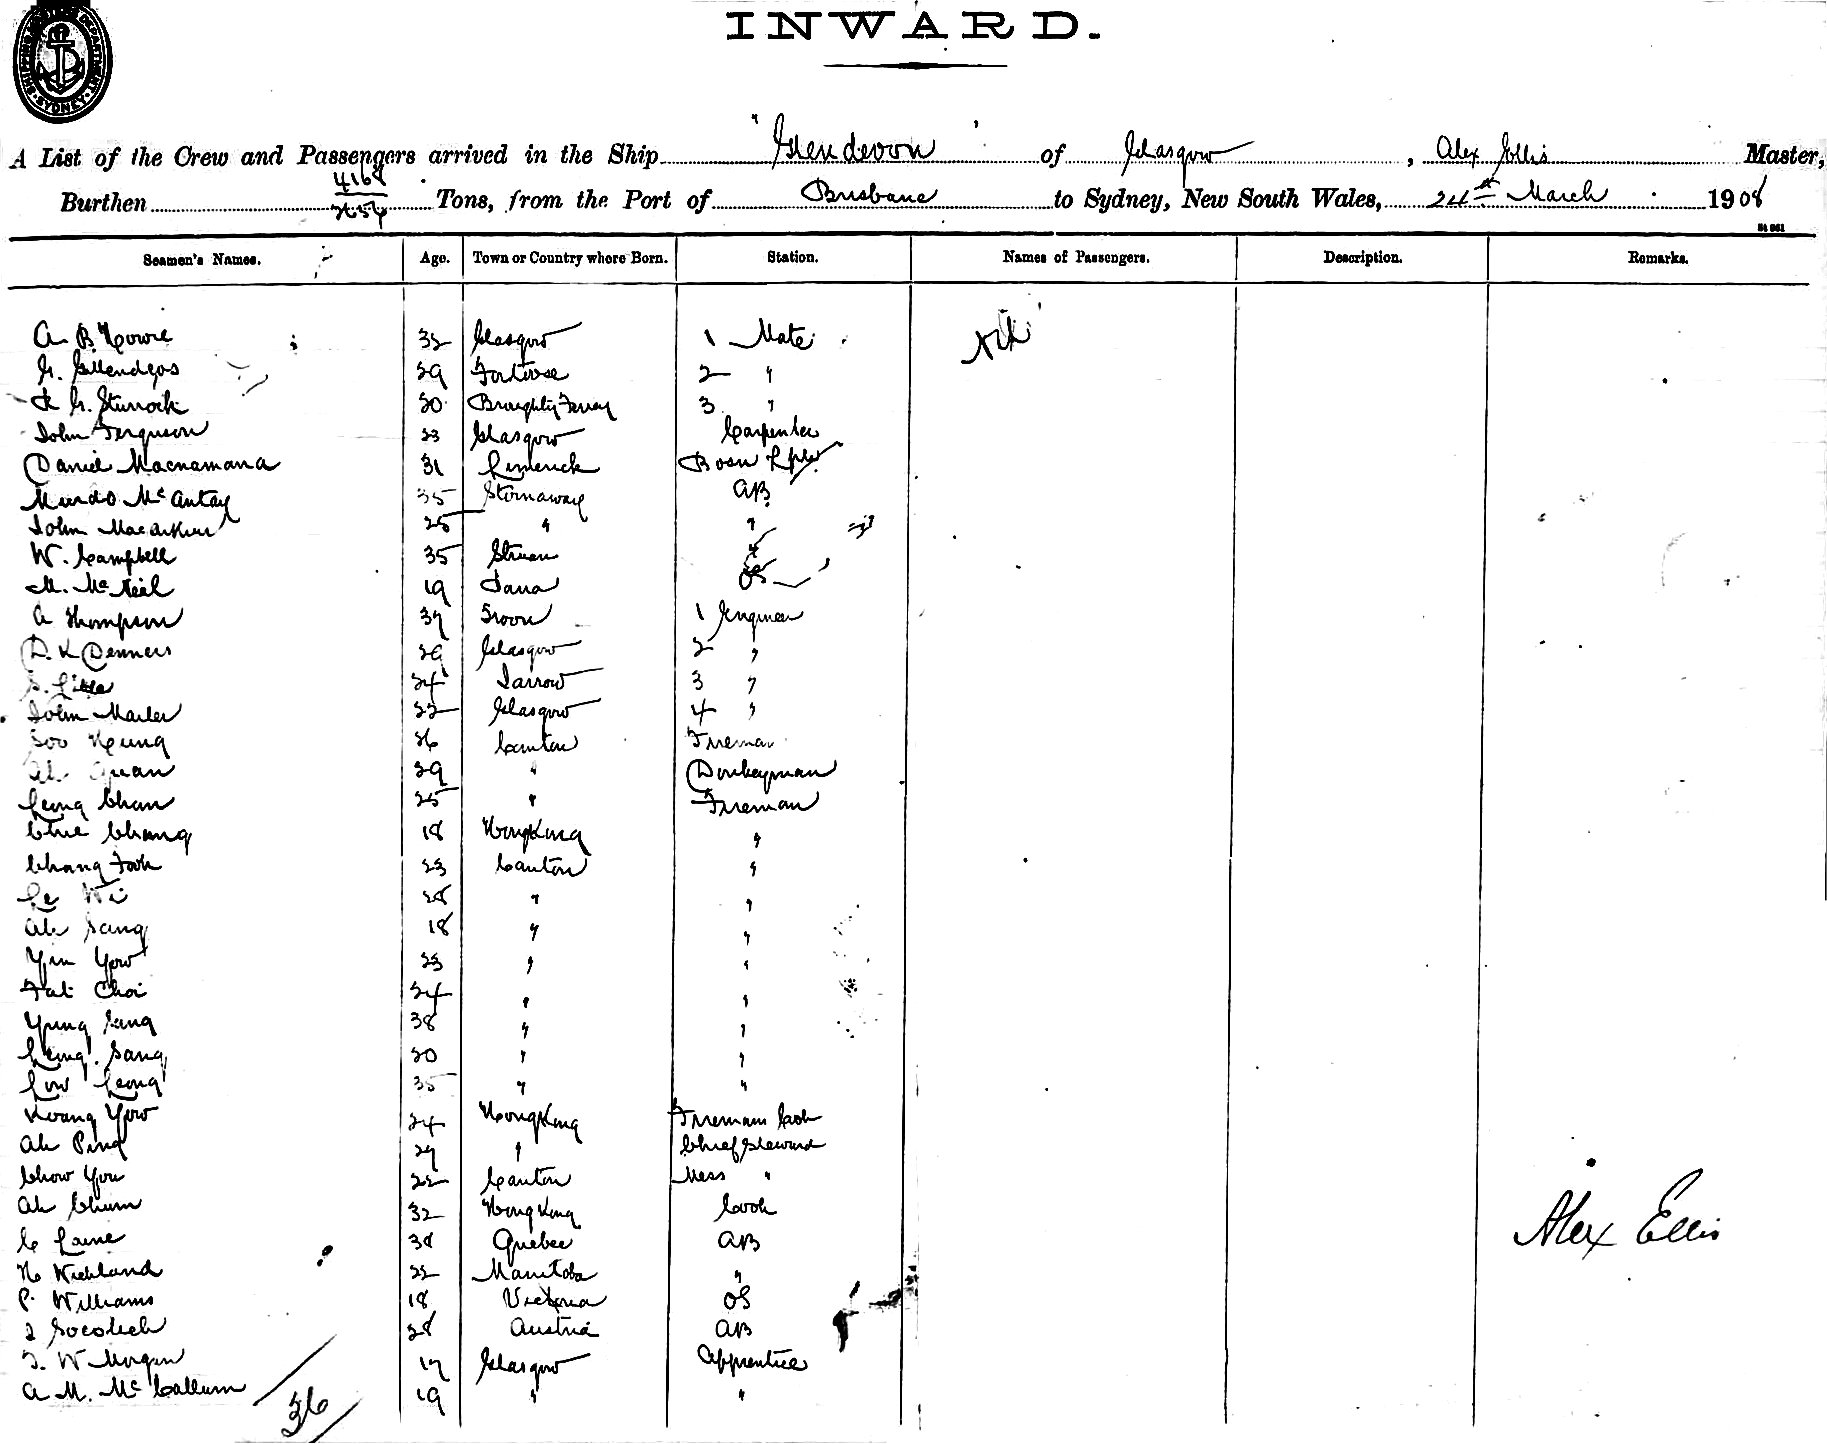 SHIPPING MASTERS DEPARTMENT SYDNEY
INWARD.
A List of the Crew and Passengers arrived in the Ship "Glendevon" of Glasgow, Alex Ellis Master,
Burthen 4168 Tons, from the Port of Brisbane to Sydney, New South Wales, 24th March 1908
Seamen's Names. Age. Town or Country where Born. Station. Names of Passengers. Description. Remarks.
A. B. Howie 32 Glasgow 1 Mate Nil
G. 29 Fortrose 2 "
G. Sturrock 30 Broughty Ferry 3 "
John Ferguson 23 Glasgow Carpenter
Daniel Macnamara 31 Limerick Bosn Lptr
Murdo McAulay 35 Stornaway AB
John Macarthur 25 " "
W. Campbell 35 Struan "
M. McNeil 19 OS
A Thompson 37 Troon 1 Engineer
D. K Denners 29 Glasgow 2 "
S. Little 24 Jarrow 3 "
John Marler 22 Glasgow 4 "
Soo Heung 36 Canton Fireman
Ah Quan 29 " Donkeyman
Leong Chan 25 " Fireman
Chie Chang 18 HongKong "
Chang Fook 23 Canton "
Le Wi 28 " "
Ah Sang 18 " "
Yin Yow 23 " "
Fat Choi 24 " "
Yung Sang 38 " "
Leung Sang 30 " "
Low Leong 35 " "
Kwang Yow 24 HongKong Firemans Cook
Ah Ping 29 " Chief Steward
Chow You 22 Canton Mess "
Ah Chum 32 HongKong Cook
C Laine 38 Quebec AB
H Wickland 22 Manitoba "
P. Williams 18 Victoria OS
J Socolich 28 Austria AB
T. W Morgan 17 Glasgow Apprentice
A M. McCallum 19 " "
36
Alex Ellis